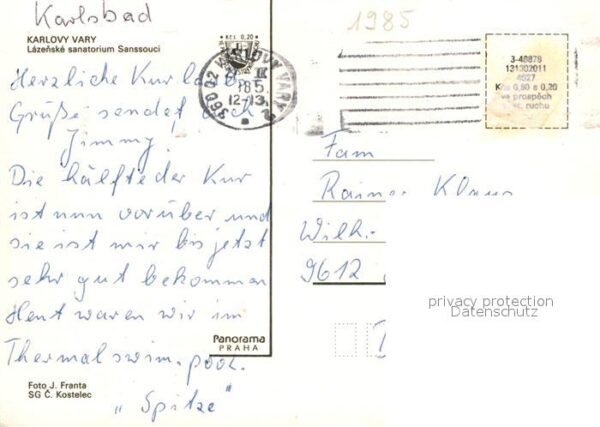 Karlsbad
KARLOVY VARY
Lázeňské sanatorium Sanssouci
Kčs 0,20
1985
360 02 KARLOVY VARY 2
85
12-13
3-48878
131302011
4627
Kčs 0,80 + 0,20
ve prospěch
ruchu
Herzliche Kur
Grüße sendet
Jimmy.
Die hälfte der Kur
ist nun vorüber und
sie ist mir bis jetzt
sehr gut bekommen
Heut waren wir im
Thermalswim.pool
„Spitze"
Fam
Rainer Klaus
Wilh.-
9612
Panorama
PRAHA
Foto J. Franta
SG Č. Kostelec
privacy protection
Datenschutz